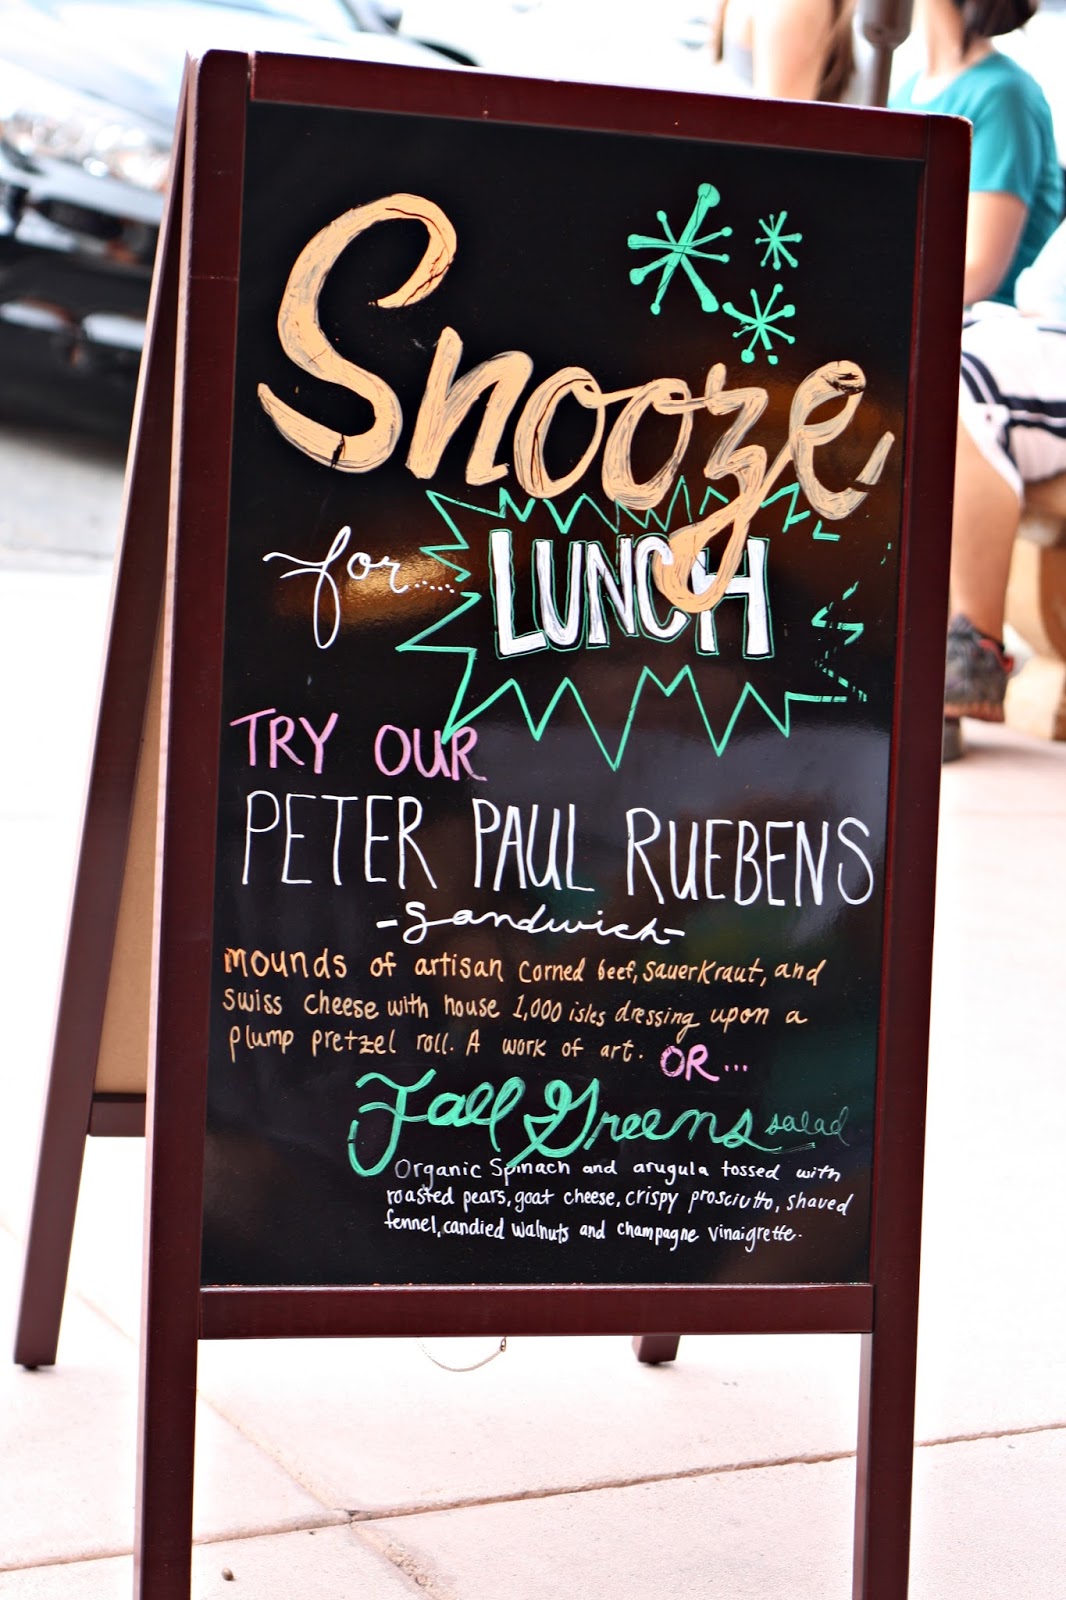 Snooze
for...... LUNCH
TRY OUR
PETER PAUL RUEBENS
-Sandwich-
mounds of artisan corned beef, sauerkraut, and
swiss cheese with house 1,000 isles dressing upon a
plump pretzel roll. A work of art. OR...
Fall Greens salad
Organic Spinach and arugula tossed with
roasted pears, goat cheese, crispy prosciutto, shaved
fennel, candied walnuts and champagne vinaigrette.